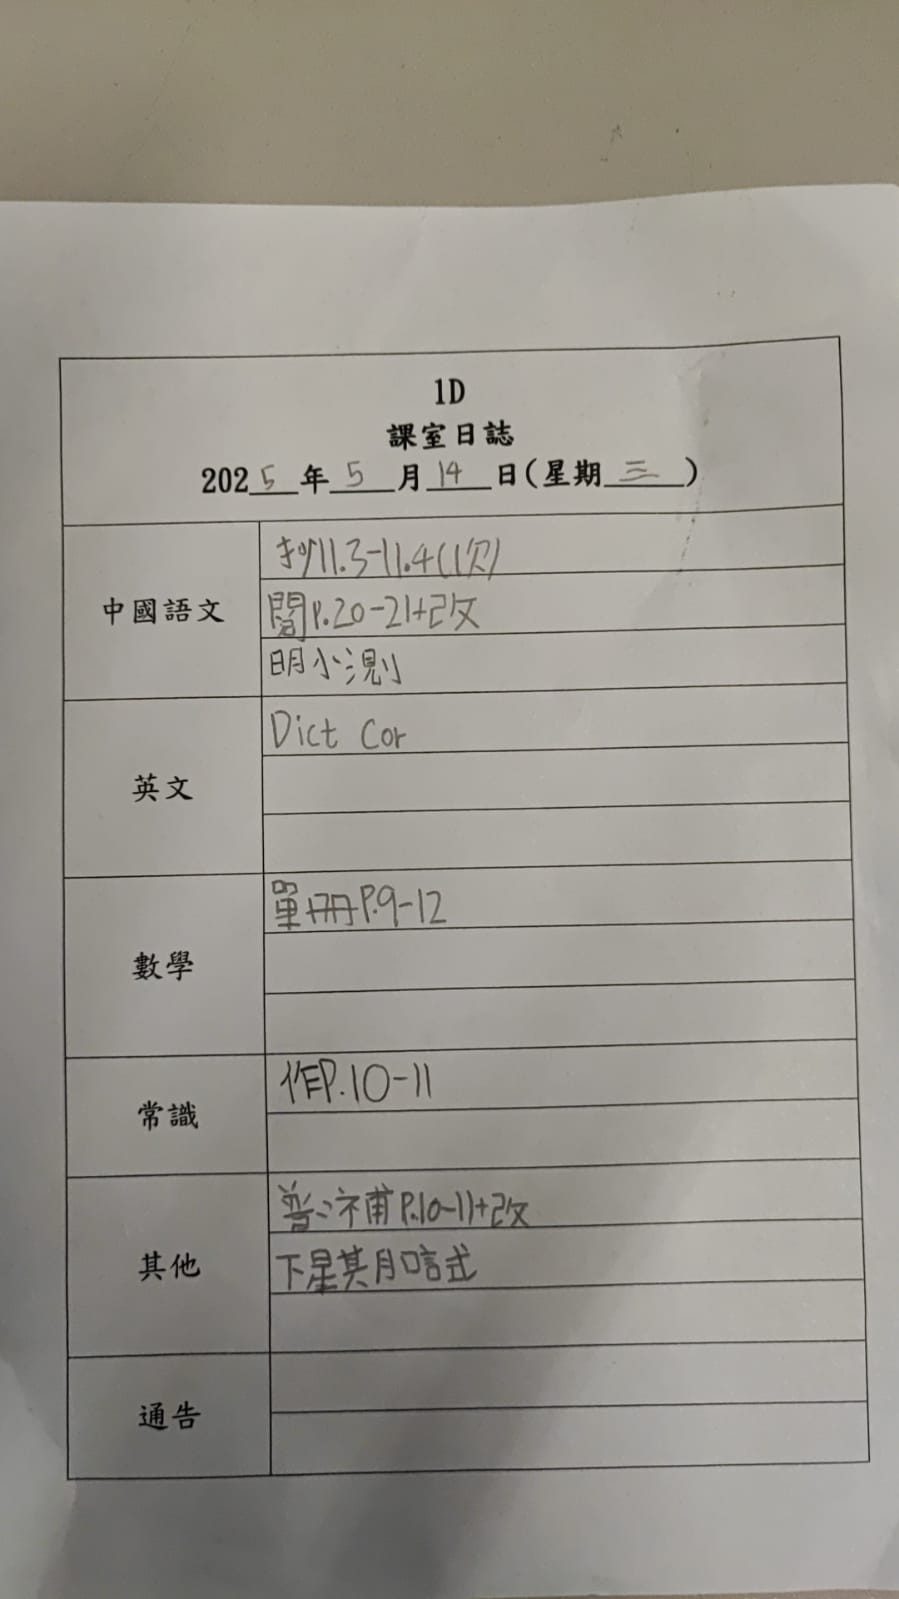 1D
課室日誌
2025年5月14日(星期三)
中國語文
抄11.3-11.4(1次)
閱P.20-21+改
明小測
英文
Dict Cor
數學
單冊P.9-12
常識
作P.10-11
其他
普:補P.10-11+改
下星期口試
通告